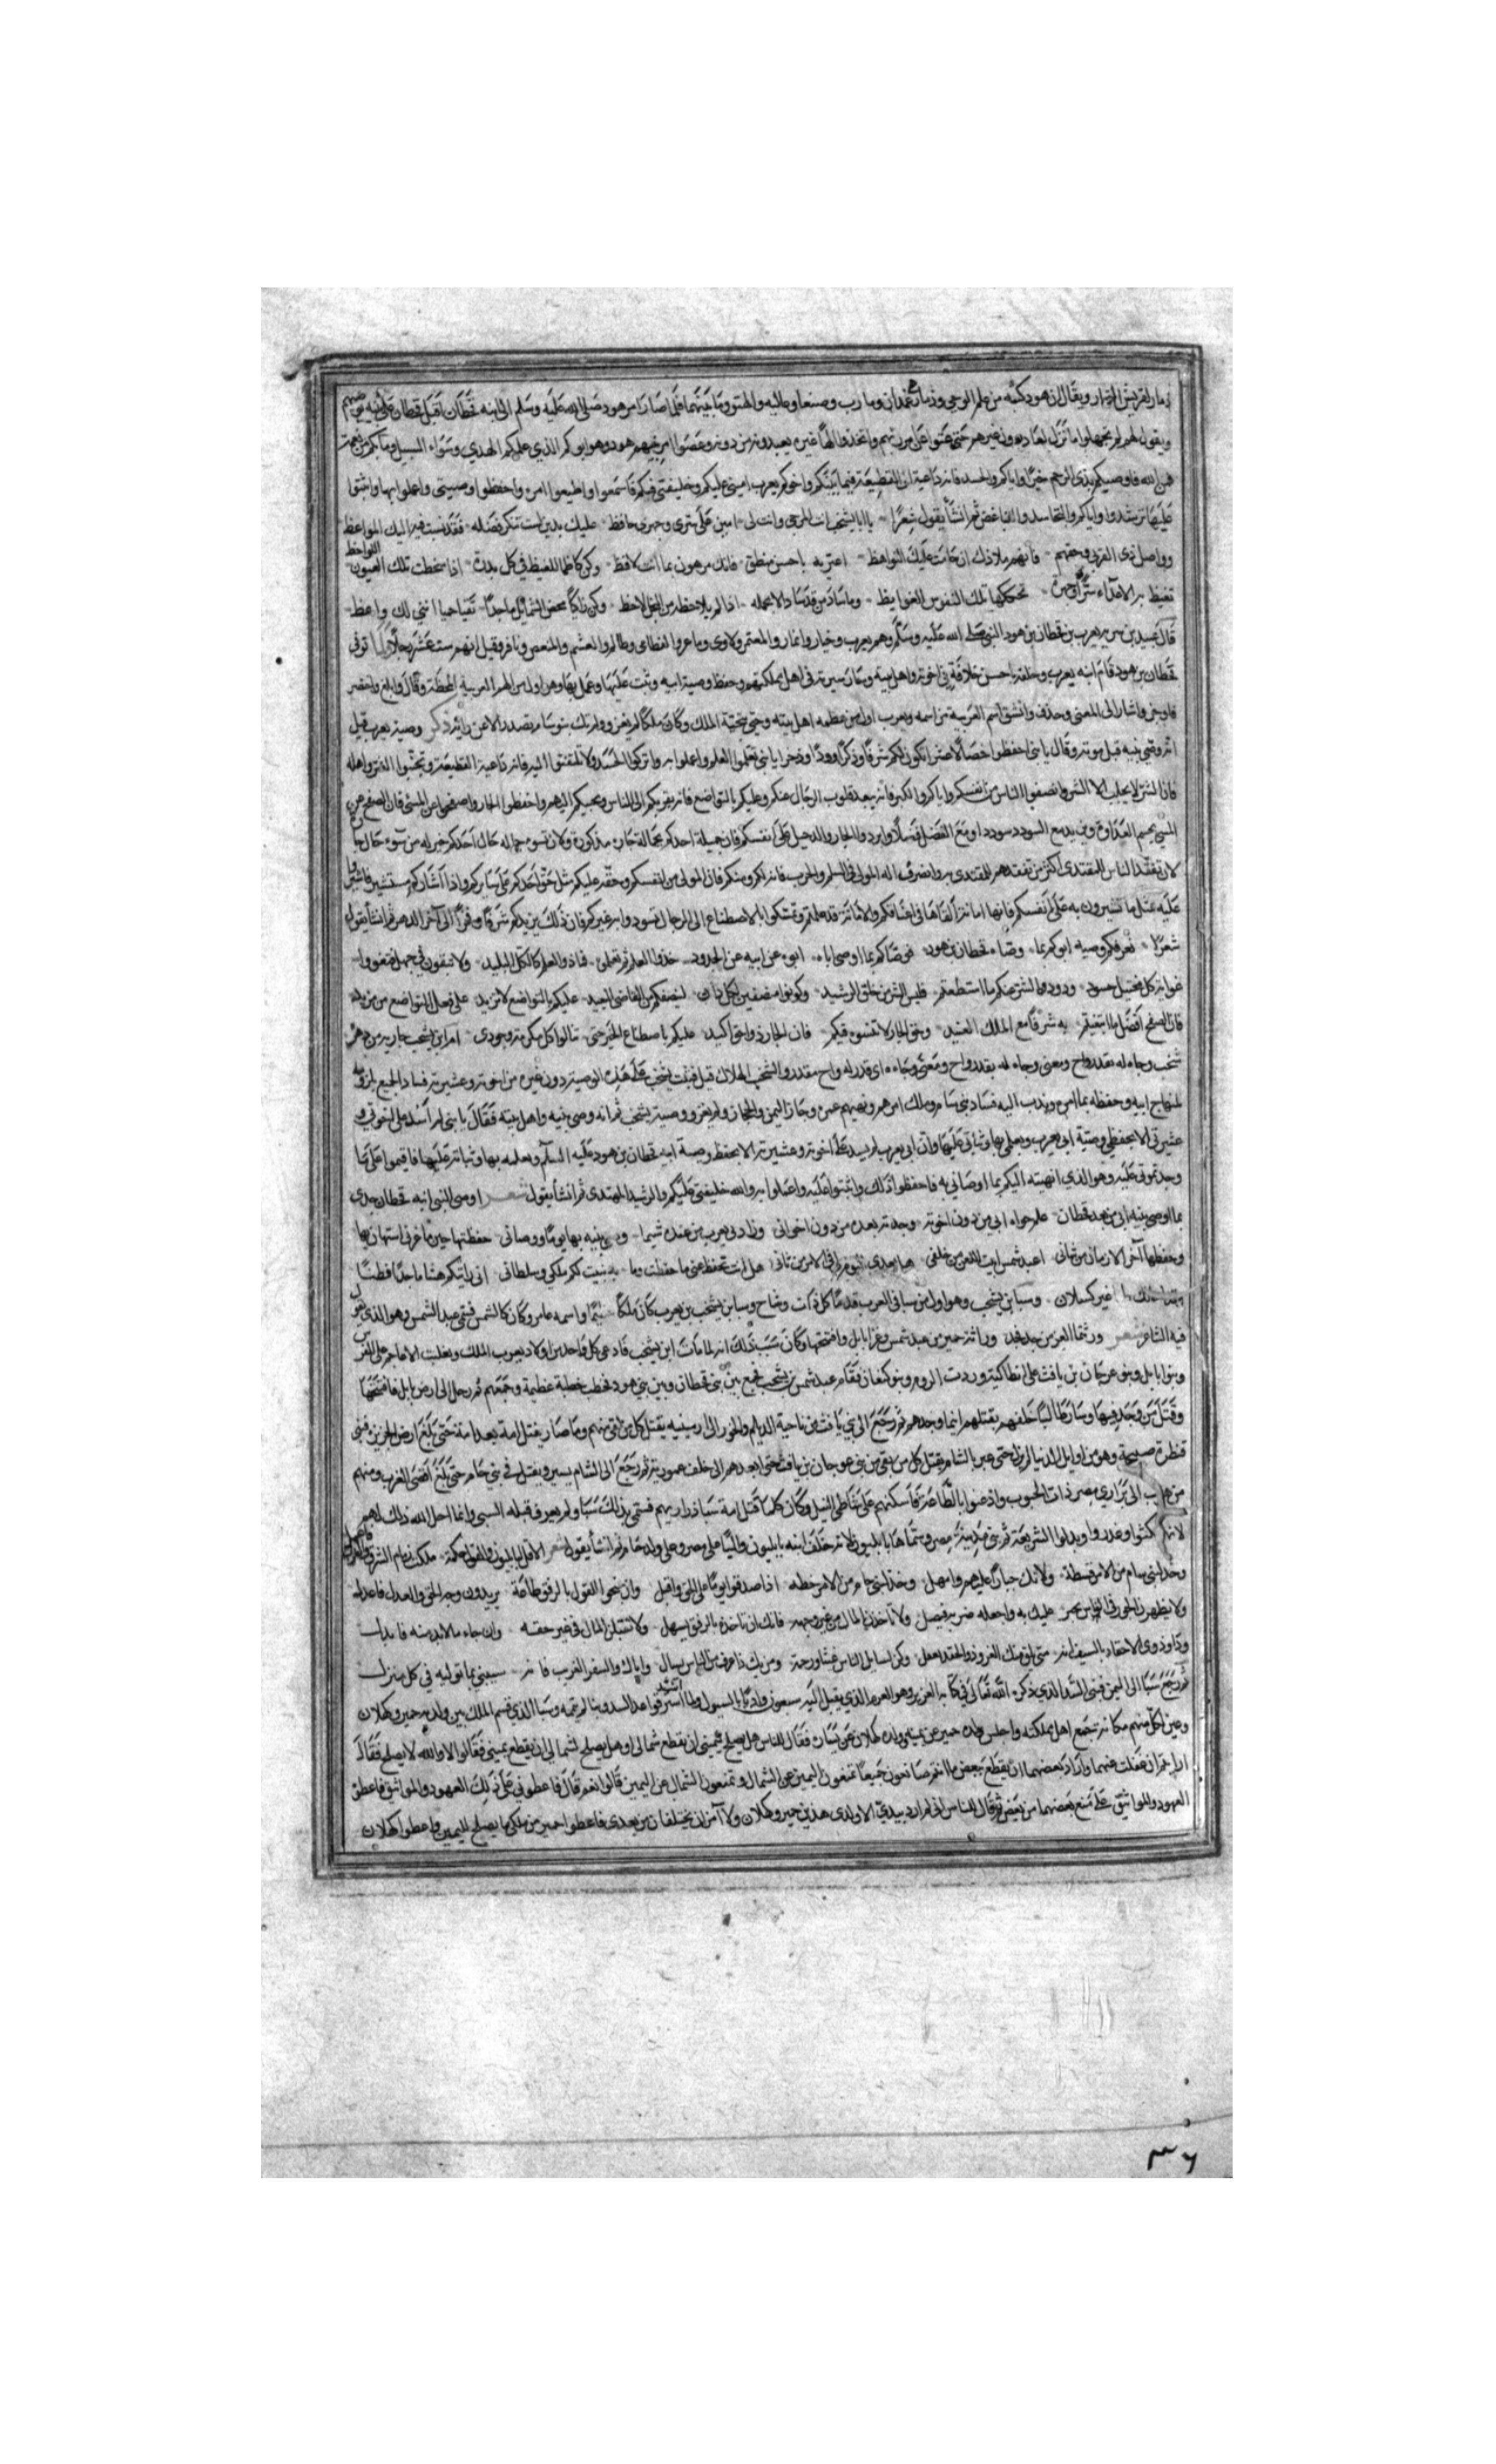 ذمار لقريش التجار ويقال ان هود كتبه من علم الوحي وذمار غمدان ومارب وصنعا وما بينهما فلما صار امر هود صلى الله عليه وسلم الى ابنه قحطان اقبل قحطان على بنيه
ويقول لهم لم تجهلوا ما نزل بعاد دون غيرهم حتى عتوا على ربهم واتخذوا الها غيره يعبدونه من دونه وعصوا امر نبيهم هود وهو ابوكم الذي علمكم الهدي وسواء السبيل وما بكم من نعمة
فمن الله واوصيكم بذي الرحم خيرا واياكم والحسد فانه داعية الى القطيعة فيما بينكم واخوكم يعرب اميني عليكم وخليفتي فيكم فاسمعوا واطيعوا امره واحفظوا وصيتي واعملوا بها واثبتوا
عليها ترشدوا واياكم والتحاسد والتباغض ثم انشأ يقول شعرا يا ابا يشجب انت المرجى وانت لي امين على سري وجهري حافظ عليك بدين لست تنكر فضله فقد سبقت فيه اليك المواعظ
وواصل ذوي القربى وحقهم فانهم ملاذك ان حامت عليك النواهظ اعتز به باحسن منطق فانك مرهون بما انت لافظ وكن كاظما للغيظ في كل بدرة اذا سخطت تلك العيون اللواحظ
تغيظ به الاعداء سرا وجهرة تحركها تلك النفوس الغوايظ وما ساد من قد ساد الا بحمله اذا لم يلاحظه من البخل لاحظ وكن زاكيا محض الشمائل ماجدا تقيا حييا انني لك واعظ
قال عبيد بن سريه يعرب بن قحطان بن هود النبي صلى الله عليه وسلم وهم يعرب وخيار وانمار والمعتمر ولاوي وماعز والقطامي وظالم والغشم والمتعصر ونافر وقيل انهم ستة عشر رجلا توفي
قحطان بن هود قام ابنه يعرب وخلفه باحسن خلافة في اخوته واهل بيته وسار سيرته في اهل مملكته وحفظ وصية ابيه وثبت عليها وعمل بها وهو اول من الهم العربية المحضة وقال وابلغ واختصر
فاوجز واشار الى المعنى وحذف واشتق اسم العربية من اسمه ويعرب اول من عظمه اهل بيته وحيي بتحية الملك وكان ملكا لم يغز ولم تك بنو سام بصدد الاعن رايه ذكر وصية يعرب قيل
انه وصي بنيه قبل موته وقال يا بني احفظوا خصالا عشرا تكون لكم شرفا وذكرا وودا وذخرا يا بني تعلموا العلم واعملوا به واتركوا الحسد ولا تلتفتوا اليه فانه داعية القطيعة وتجنبوا الشر واهله
فان الشر لا يجلب الا الشر وانصفوا الناس من انفسكم واياكم والكبر فانه يبعد قلوب الرجال عنكم وعليكم بالتواضع فانه يقربكم الى الناس ويحببكم اليهم واحفظوا الجار واصفحوا عن المسئ فان الصفح عن
المسئ يحسم العداوة ويزيد مع السودد سوددا ومع الفضل فضلا وابروا الجار والدخيل على انفسكم فان جميلة احدكم بحالة جاره مذكورة ولان تسوء حالة حال احدكم خير له من سوء حال جاره
لان تفقد الناس المقتدى اكثر من تفقدهم المقتدى به وانصرف اله المولى في السلم والحرب فانه لكم ومنكم فان المولى من انفسكم وحقه عليكم مثل حق احدكم على سايركم واذا استشاركم مستشير فاشيروا
عليه بمثل ما تشيرون به على انفسكم فانها امانة القاها في اعناقكم والامانة قد علمتم وتمسكوا بالاصطناع الى الرجال تسودوا به غيركم فان ذلك يزيدكم شرفا وفخرا الى آخر الدهر ثم انشأ يقول
شعرا نعرفكم وصيه ابوكم بما وصاه قحطان بن هود فوصاكم بما اوصى اباه ابوه عن ابيه عن الجدود خذوا العلم ثم تعلمى فما ذو العلم كالكل البليد ولا تبقون في جهل فتغووا
غواية كل مختبل حسود وذودوا الشر عنكم ما استطعتم فليس الشر من خلق الرشيد وكونوا منصفين لكل دان لينصفكم من القاصي البعيد عليكم بالتواضع لا تزيد على فعل التواضع من مزيد
فان الصفح افضل ما ابتغيتم به شرفا مع الملك العنيد وحق الجار لا تنسوه فيكم فان الجار ذو حق اكيد عليكم باصطناع الخير حتى تنالوا كل مكرمة وجودي
لمنهاج ابيه وحفظه بما امر ويندب اليه فساد بني سام وملك امرهم وحاز اليمن والحجاز ولم يغز ووصية يشجب ثم انه وصي بنيه واهل بيته فقال يا بني لم اسد على اخوتي و
عشيرتي الا بحفظي وصية ابي يعرب وبعملي بها وثباتي عليها وان ابي يعرب لم يسد على اخوته وعشيرته الا بحفظ وصية ابيه قحطان بن هود عليه السلم وبعمله بها وثباته عليها فاقيموا على ما
وجدتموني عليه وهو الذي انهيته اليكم بما اوصاني به فاحفظوا ذلك واثبتوا عليه واعملوا به والله خليفتي عليكم والرشيد المهتدى ثم انشأ يقول شعر اوصى النبي ابنه قحطان جدي
بما اوصى بنيه ابي من بعد قحطان علم حواه ابي من دون اخوته وجدته بعده من دون اخواني وزادني يعرب من عنده شيما وصى بنيه بها يوما ووصاني حفظتها حين ما غيري استهان بها
وحفظها آخر الازمان من ثاني اعبد شمس ابيت اللعن من خلفي هل انت تحفظ عني ما حفظت وما به بنيت لكم ملكي وسلطاني
غير كسلان وسبا بن يشجب وهو اول من سبا في العرب قدما وسبا بن يشجب بن يعرب كان ملكا واسمه عامر وكان كالشمس فسمي عبد الشمس وهو الذي يقول
فيه الشاعر شعر ورثنا العز من جد فجد وراثة حمير من عبد شمس وغزا بابل وافتتحها وكان سبب ذلك انه لما مات ابن يشجب فادعى كل واحد من اولاد يعرب الملك وتغلبت الاعاجم على الفرس
وبنوا بابل وبنو عرجان بن يافث على انطاكية وردت الروم وبنو كنعان فقام عبد شمس بن يشجب فجمع بين بني قحطان وبين بني هود فخطب خطبة عظيمة وجمعهم ثم رحل الى ارض بابل فافتتحها
وقتل من وجد فيها وسار طالبا خلفهم يقتلهم اينما وجدهم ثم رجع الى بني يافث من ناحية الديلم والخزر الى ارمينيه يقتل كل من لقي منهم وما صار يقتل امة بعد امة حتى بلغ ارض الجزيرة فبنى
قنطرة صبيحة وهو من اوايل الدنيا لم يزل حتى عبر بالشام يقتل كل من بقي من بني عوجان بن يافث حتى ابعدهم الى خلف عمورية ثم رجع الى الشام يسير ويقتل في بني حام حتى بلغ اقصى الغرب ومنهم
من هرب الى براري مصر ذات الحبوب واذعنوا بالطاعة فاسكنهم على شاطئ النيل وكان كلما قتل امة سبا ذراريهم فسمي بذلك سبا ولم يعرف قبله السبي وانما احل الله ذلك لهم
لانهم نكثوا وغدروا وبدلوا الشريعة ثم بنى مدينة مصر وسماها بابليون ثم خلف ابنه بابليون واليا على مصر وعلى ولد حام ثم انشأ يقول شعر الاقل لبابليون والقول حكمة ملكت زمام الشرق والغرب فاجمل
وخذ لبني سام من الامر قسطه ولا تك جبارا عليهم وامهل وخذ لبني حام من الامر خطة اذا صدقوا يوما على الحق واقبل وان جنحوا القول بالرفق طاعة يريدون وجه الحق والعدل فاعدل
ولا تظهرن الجور في الناس يجتروا عليك به واجعله ضربة فيصل ولا تاخذن المال من غير وجهه فانك ان تاخذه بالرفق يسهل ولا تتلفن المال في غير حقه وان جاء ما لابد منه فابذل
وداو ذوي الاحقاد بالسيف انه متى يلق منك العز ذو الحقد يعقل وكن لسايل الناس غيثا ورحمة ومن يك ذا عرف من الناس يسال واياك والسفر القريب فانه سيبني بما توليه في كل منزل
ثم رجع سبا الى اليمن فبنى السد الذي ذكره الله تعالى في كتابه العزيز وهو العرم الذي يقبل اليه سبعون واديا بالسيول ولما اسس قواعد السد وبناه لم يتمه وسبا الذي قسم الملك بين ولديه حمير وكهلان
وعين لكل منهم مكانه جمع اهل مملكته واجلس ولده حمير عن يمينه وولده كهلان عن يساره فقال للناس هل يصلح ليميني ان يقطع شمالي او هل يصلح لشمالي ان يقطع يميني فقالوا لا والله لا يصلح فقال
ارايتم ان غفلت عنهما واراد بعضهما ان يقطع بعض ما انتم صانعون جميعا تمنعون اليمين عن الشمال وتمنعون الشمال عن اليمين قالوا نعم قال فاعطوني على ذلك العهود والمواثيق فاعطوه
العهود والمواثيق على منع بعضهما من بعض ثم قال للناس اني لم ارد بيدي الا ولدي هذين حمير وكهلان ولا آمن ان يختلفا من بعدي فاعطوا حمير من ملكي ما يصلح لليمين واعطوا كهلان
٣٦